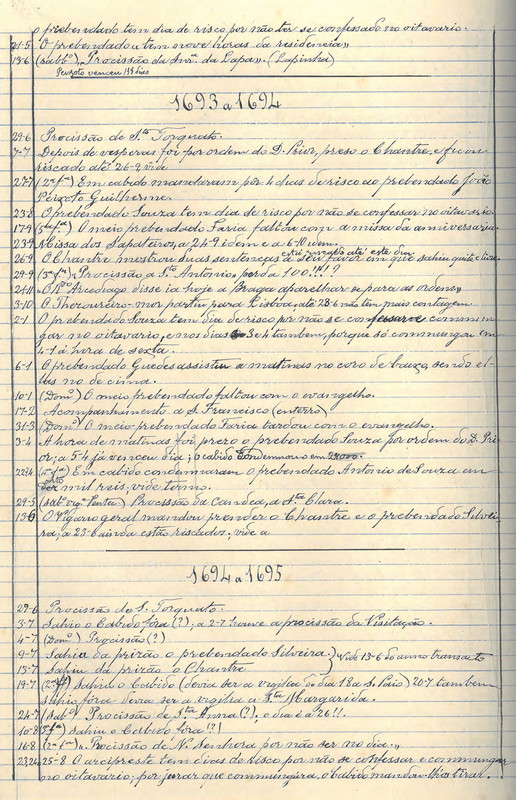 o prebendado tem dia de risco por não ter se confessado no oitavario.
21-5 O prebendado u tem nove horas da residencia»
13-6 (sabbº) „Procissão da Snrª. da Lapa". (Lapinha)
Peixoto venceu 198 dias
1693 a 1694
29-6 Procissão de S. Torquato.
7-7 Depois de vesperas foi por ordem do D. Prior, preso o Chantre, e ficou
riscado até 26-9 vide
27-7 (2ª fª) Em cabido mandaram pôr 4 dias de risco ao prebendado João
Peixoto Guilherme.
23-8 O prebendado Souza tem dia de risco por não se confessar no oitavario.
17-9 O meio prebendado Faria faltou com a missa da anniversaria
23-9 Missa dos Sapateiros, a 24-9 idem e a 6-10 idem.
26-9 O Chantre mostrou duas sentenças a seu favor em que sahiu quite e livre
até este dia
29-9 (3ª fª) „Procissão a Stº Antonio, perda 100"!!!?
21-11 „O Rdº Arcediago disse ia hoje a Braga aparelhar-se para as ordens„
3-10 O Thezoureiro-mor partiu para Lisboa, até 28-6 não tem mais contagem.
2-1 O prebendado Souza tem dia de risco por não se confessar e commun-
gar no oitavario, e nos dias 3 e 4 tambem, porque só commungou em
4-1 á hora de sexta.
6-1 O prebendado Guedes assistiu a matinas no coro de baixo, sendo el-
las no de cima.
10-1 (Domº) O meio prebendado faltou com o evangelho.
17-2 Acompanhamento a S. Francisco (enterro)
31-3 (Domº) O meio prebendado Faria tardou com o evangelho.
3-4 A hora de matinas foi prezo o prebendado Souza por ordem do D. Pri-
or; a 5-4 já venceu dia; o cabido
22-4 Em cabido condemnaram o prebendado Antonio de Souza em
dez mil reis, vide termo.
29-5 Procissão da Candea, a Stª Clara.
13-6 O Vigario geral mandou prender o Chantre e o prebendado Silvei-
ra; a 23-6 ainda estão riscados; vide a
1694 a 1695
29-6 Procissão de S. Torquato.
3-7 Sahio o Cabido fóra (?); a 2-7 houve a procissão da Visitação.
4-7 (Domº) Procissão (?)
9-7 Sahiu da prizão o prebendado Silveira. } Vide 13-6 do anno transacto
13-7 Sahiu da prizão o Chantre
19-7 (2ª fª) sahiu o Cabido (devia ser a vigilia do dia 18 a S. Paio) 20-7 tambem
sahiu fóra devia ser a vigilia a Stª Margarida.
24-7 (sabº) Procissão de Stª Anna (?), e dia é a 26!!.
10-8 (3ª fª) sahiu o Cabido, fóra!?)
16-8 (2ª fª) „Procissão de N. Senhora por não ser no dia„
23, 24 e 25-8 O arcipreste tem dias de risco por não se confessar e commungar
no oitavario; por jurar que commungára, o Cabido mandou-lhos tirar.